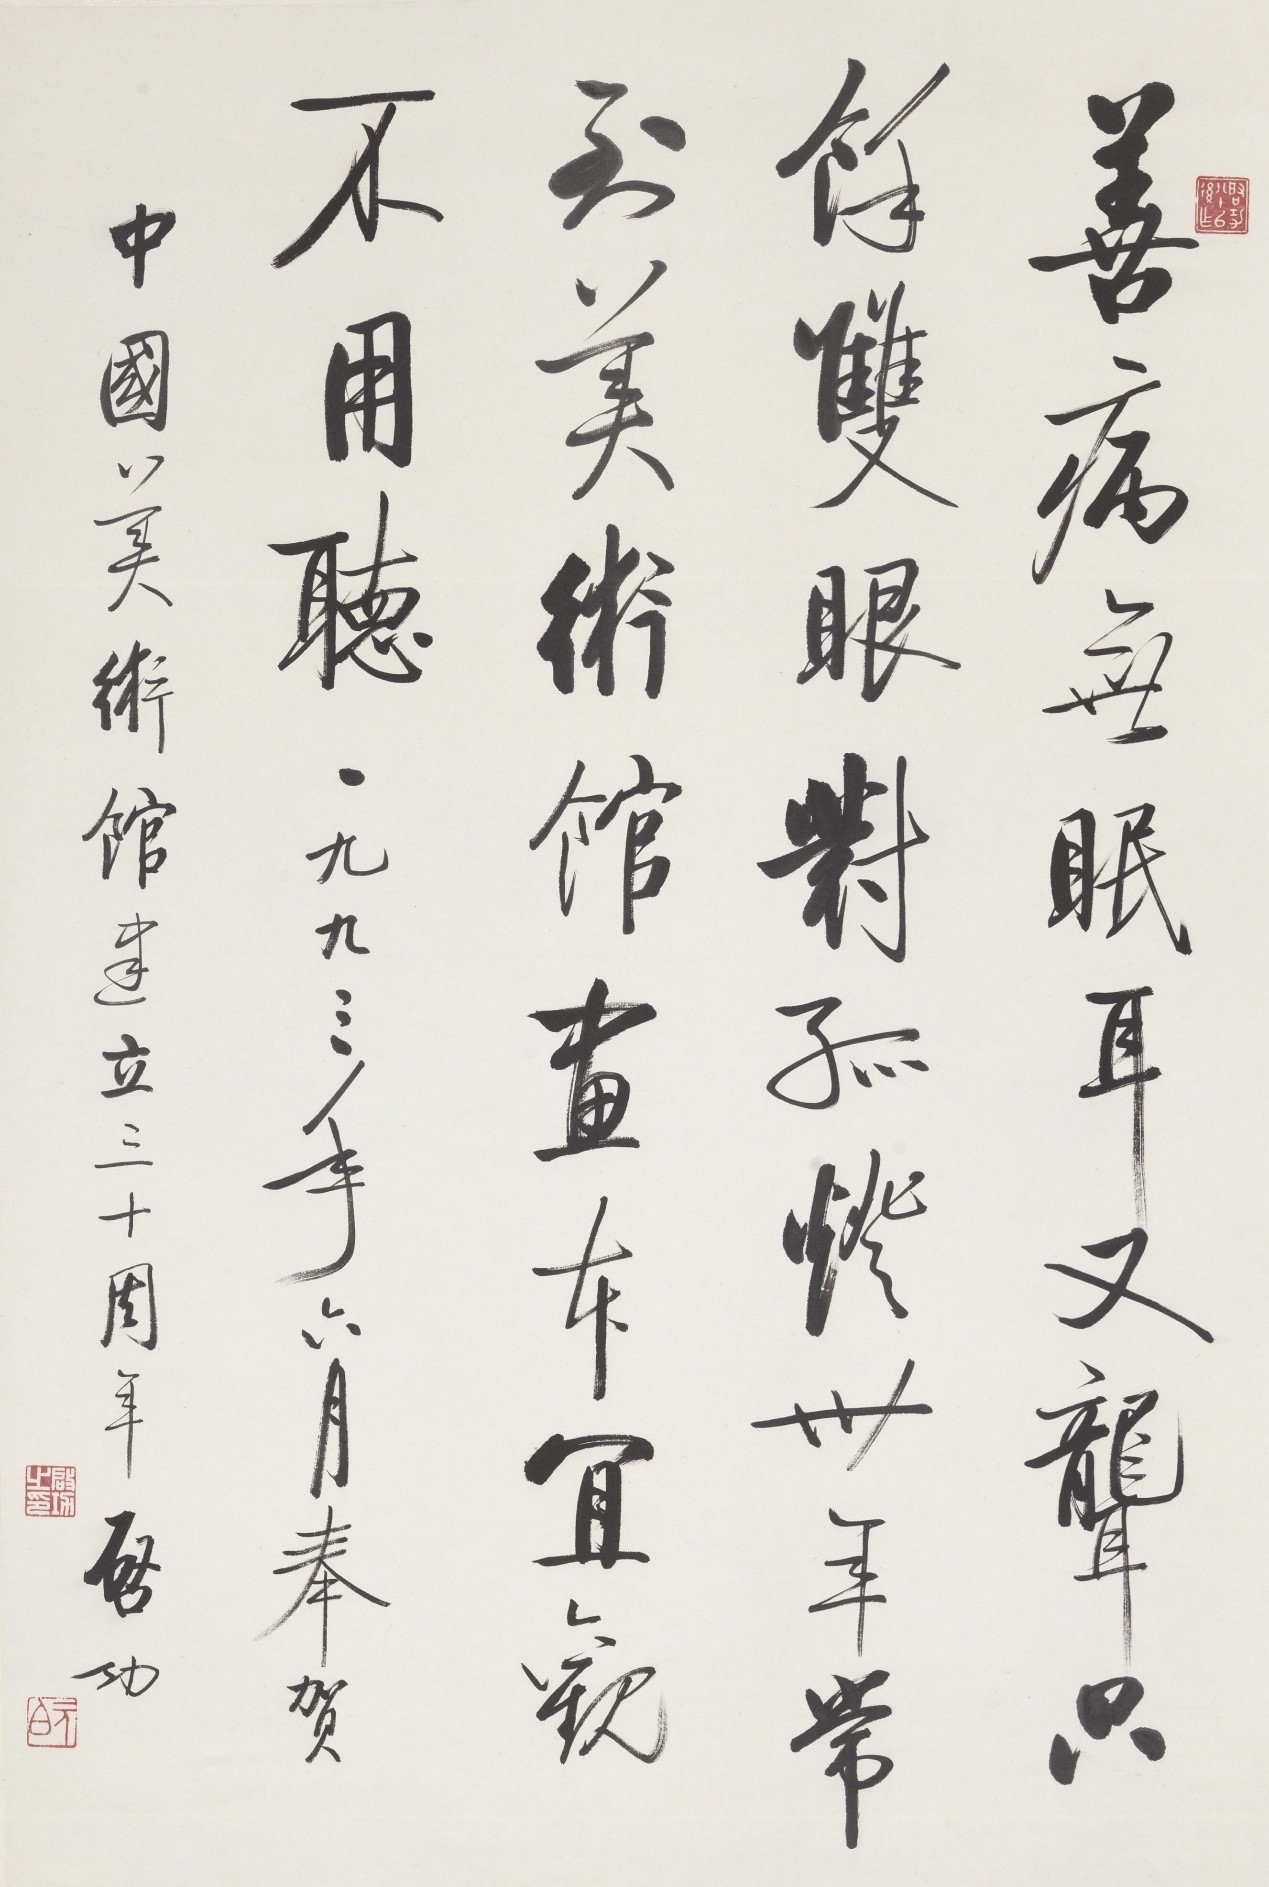 善病無眠耳又聾只
餘雙眼對孤燈卅年常
到美術館畫本宜觀
不用聽 一九九三年六月奉賀
中國美術館建立三十周年 啓功
啟功之印
元白